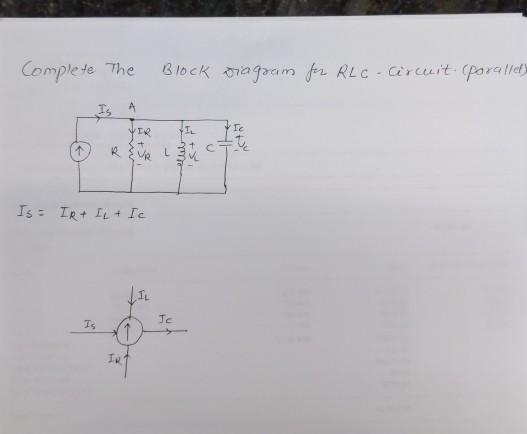 Complete The Block Diagram for RLC - Circuit. (parallel)
Is A
IR IL Ic
R + VR - L + VL - C + Vc -
Is = IR + IL + Ic
IL
Is Ic
IR